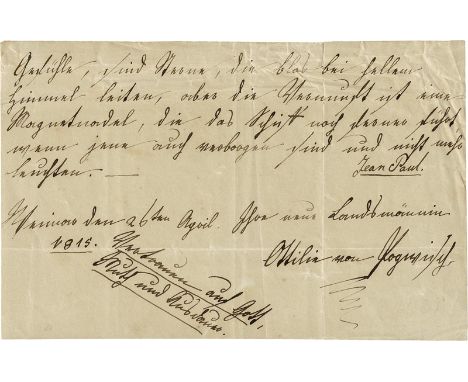 Gefühle, sind Sterne, die blos bei hellem
Himmel leiten, aber die Vernunft ist eine
Magnetnadel, die das Schiff noch ferner führt
wenn jene auch verborgen sind und nicht mehr
leuchten. —
Jean Paul.
Weimar den 26ten April.
1815.
Ihre neue Landsmännin
Ottilie von Pogwisch,
Vertrauen auf Gott,
Muth und Ausdauer.